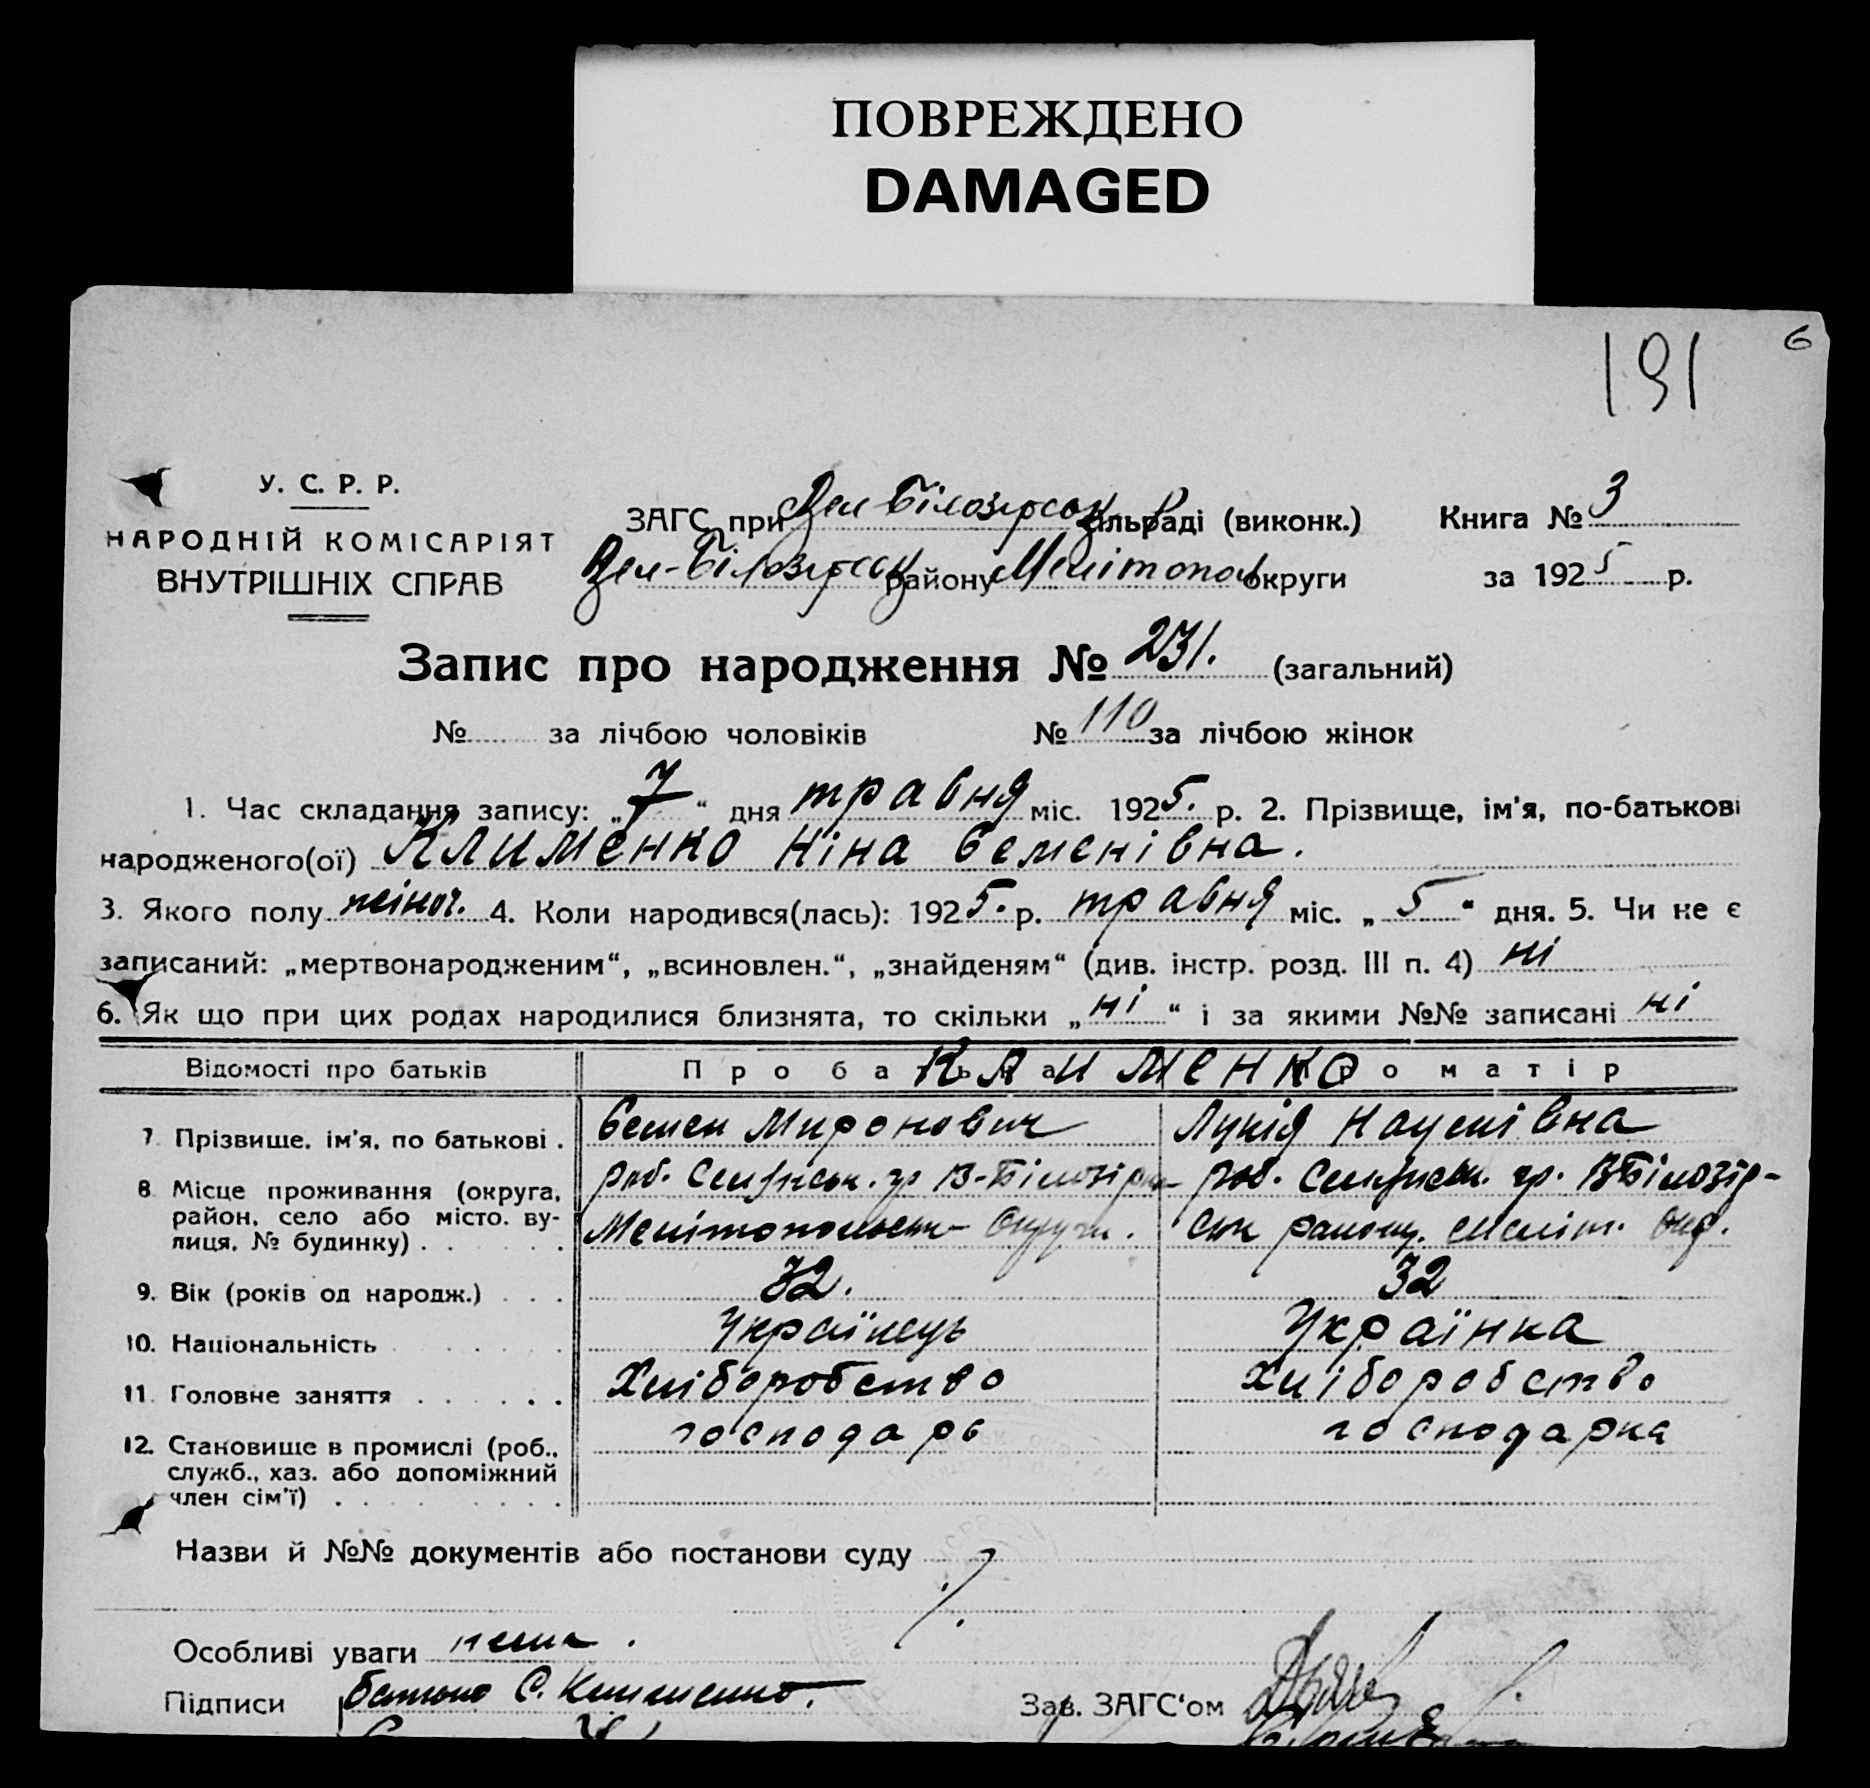 ПОВРЕЖДЕНО
DAMAGED
6
191
У. С. Р. Р.
НАРОДНІЙ КОМІСАРІЯТ
ВНУТРІШНІХ СПРАВ
ЗАГС при Вел Білозірськ сільраді (виконк.) Книга № 3
Вел-Білозірськ району Мелітопол округи за 1925 р.
Запис про народження № 231. (загальний)
№ за лічбою чоловіків № 110 за лічбою жінок
1. Час складання запису: „7“ дня травня міс. 1925. р. 2. Прізвище, ім'я, по-батькові
народженого(ої) Клименко Ніна Семенівна.
3. Якого полу жіноч. 4. Коли народився(лась): 1925. р. травня міс. „5“ дня. 5. Чи не є
записаний: „мертвонародженим“, „всиновлен.“, „знайденям“ (див. інстр. розд. III п. 4) ні
6. Як що при цих родах народилися близнята, то скільки „ні“ і за якими №№ записані ні
Відомості про батьків Про батька Про матір
Клименко
7. Прізвище, ім'я, по батькові . Семен Миронович Лукія Наумівна
8. Місце проживання (округа, В-Білозірка В-Білозір-
район, село або місто, ву- Мелітопольськ Округи. ськ району. Меліт. Окр.
лиця, № будинку) . . . .
9. Вік (років од народж.) . . . 32. 32
10. Національність . . . . . Українець Українка
11. Головне заняття . . . . . Хліборобство Хліборобство
12. Становище в промислі (роб., господарь господарка
служб., хаз. або допоміжний
член сім'ї) . . . . . . . .
Назви й №№ документів або постанови суду
Особливі уваги нема.
Підписи батько С. Клименко. Зав. ЗАГС'ом